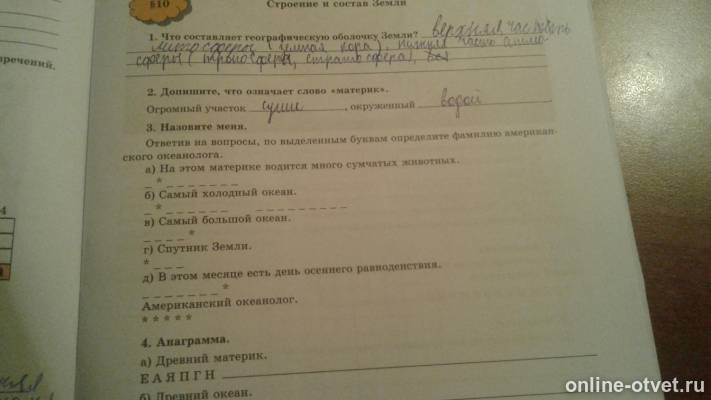 §10
Строение и состав Земли
1. Что составляет географическую оболочку Земли? верхняя часть
литосферы (земная кора), нижняя часть атмо-
сферы (тропосфера, стратосфера),
2. Допишите, что означает слово «материк».
Огромный участок суши, окруженный водой
3. Назовите меня.
Ответив на вопросы, по выделенным буквам определите фамилию американ-
ского океанолога.
а) На этом материке водится много сумчатых животных.
_ * _ _ _ _ _ _ _
б) Самый холодный океан.
_ * _ _ _ _ _ _ _ _ _ _ _ _ _ _ _
в) Самый большой океан.
_ _ _ _ *
г) Спутник Земли.
* _ _ _
д) В этом месяце есть день осеннего равноденствия.
_ _ _ _ _ _ _ *
Американский океанолог.
* * * * *
4. Анаграмма.
а) Древний материк.
Е А Я П Г Н
б) Древний океан.
речений.
4
online-otvet.ru